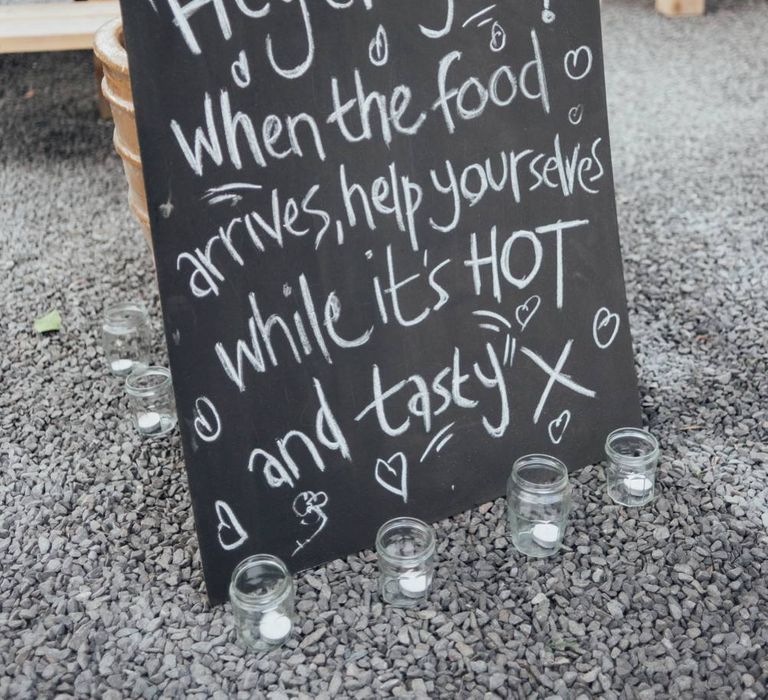 when the food
arrives, help yourselves
while it's HOT
and tasty" X